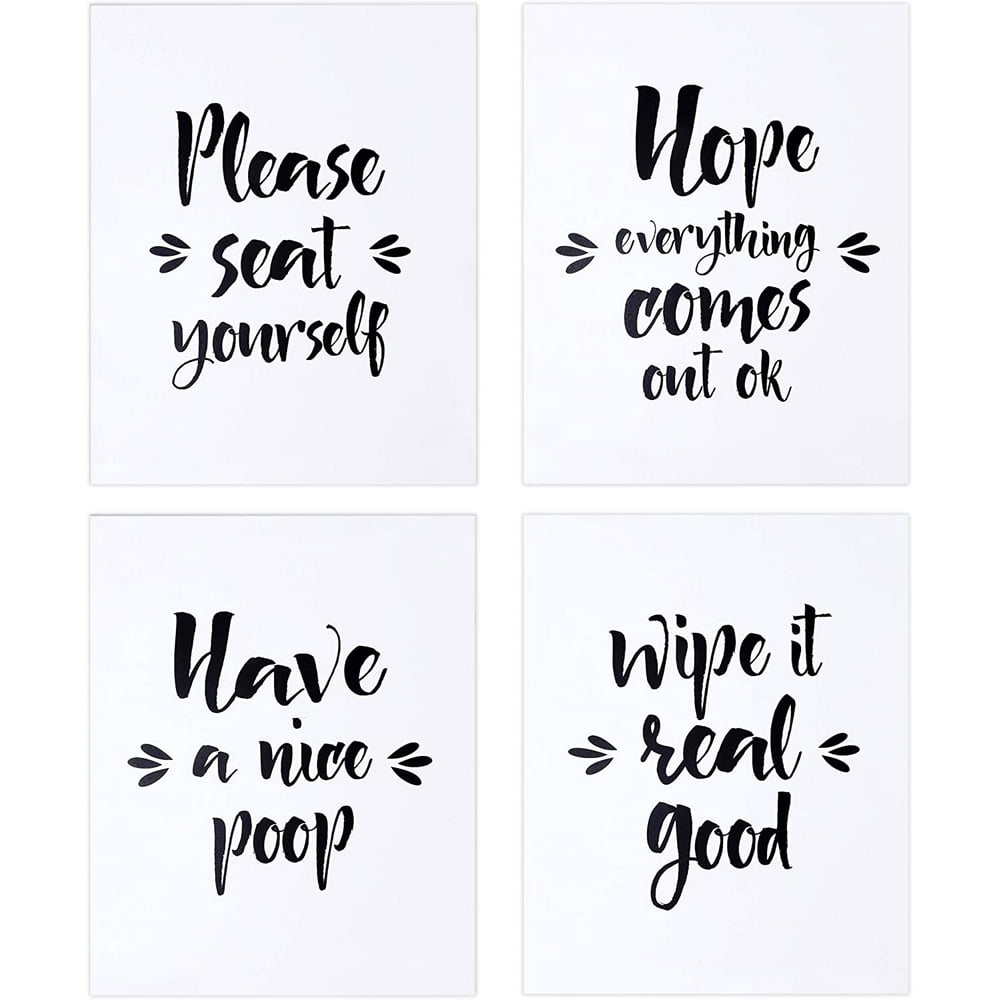 Please
seat
yourself
Hope
everything
comes
out ok
Have
a nice
poop
wipe it
real
good